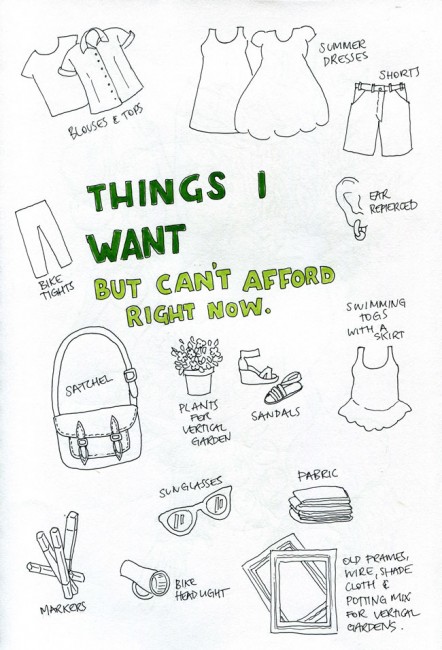 SUMMER
DRESSES
SHORTS
BLOUSES & TOPS
THINGS I
WANT
BUT CAN'T AFFORD
RIGHT NOW.
EAR
REPIERCED
BIKE
TIGHTS
SWIMMING
TOGS
WITH A
SKIRT
SATCHEL
PLANTS
FOR
VERTICAL
GARDEN
SANDALS
SUNGLASSES
FABRIC
MARKERS
BIKE
HEADLIGHT
OLD FRAMES,
WIRE, SHADE
CLOTH &
POTTING MIX
FOR VERTICAL
GARDENS.